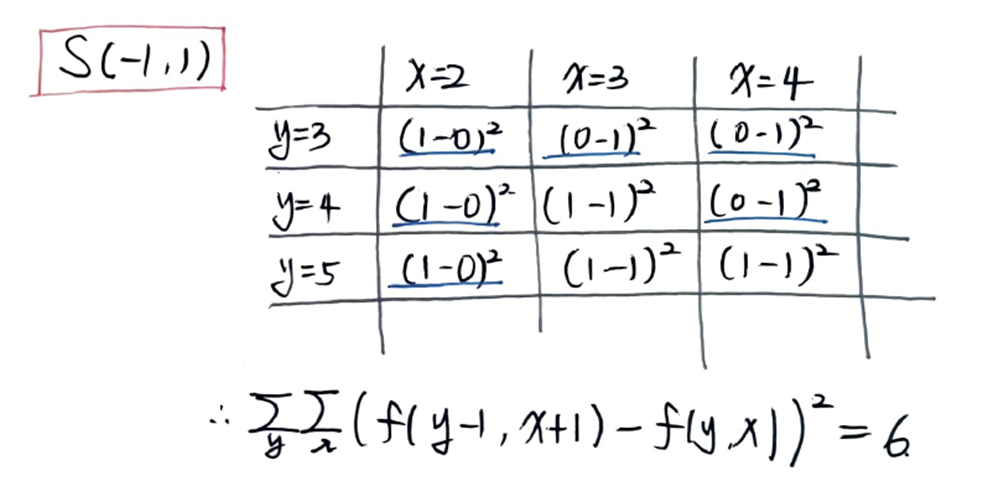 S(-1,1)
x=2 x=3 x=4
y=3 (1-0)² (0-1)² (0-1)²
y=4 (1-0)² (1-1)² (0-1)²
y=5 (1-0)² (1-1)² (1-1)²
∴ ∑y ∑x (f(y-1, x+1) - f(y,x))² = 6.